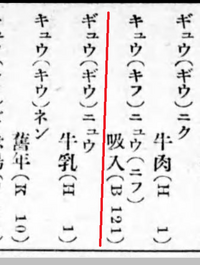 ギュウ(ギウ)ニク
牛肉(H 1)
キュウ(キフ)ニュウ(ニフ)
吸入(B 121)
ギュウ(ギウ)ニュウ
牛乳(H 1)
キュウ(キウ)ネン
舊年(K 10)